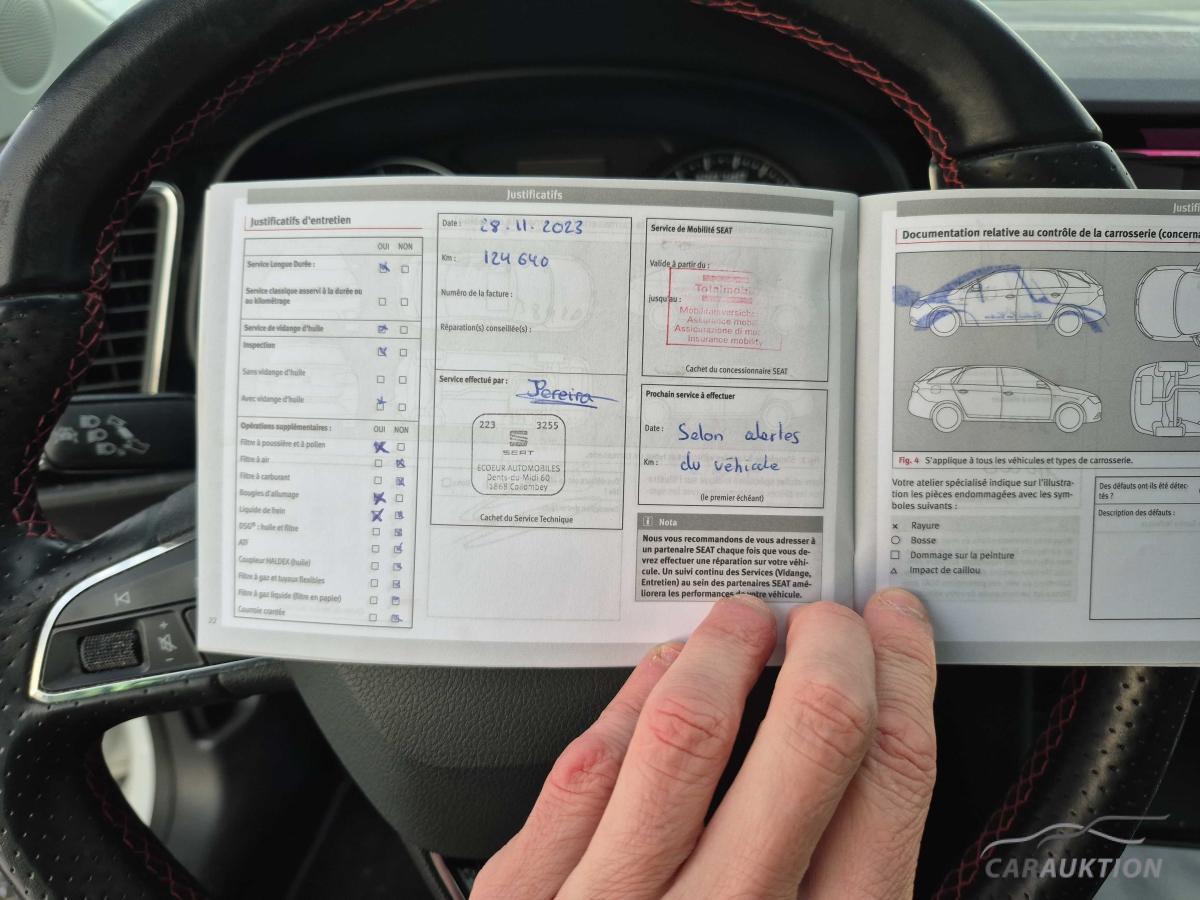 Justificatifs
Justificatifs d'entretien
OUI NON
Service Longue Durée :
Service classique asservi à la durée ou
au kilométrage
Service de vidange d'huile
Inspection
Sans vidange d'huile
Avec vidange d'huile
Opérations supplémentaires : OUI NON
Filtre à poussière et à pollen
Filtre à air
Filtre à carburant
Bougies d'allumage
Liquide de frein
DSG® : huile et filtre
ATF
Coupleur HALDEX (huile)
Filtre à gaz et tuyaux flexibles
Filtre à gaz liquide (filtre en papier)
Courroie crantée
22
Date : 28.11.2023
Km : 124 640
Numéro de la facture :
Réparation(s) conseillée(s) :
Service effectué par : Pereira
223 3255
SEAT
ECOEUR AUTOMOBILES
Dents-du-Midi 60
1868 Collombey
Cachet du Service Technique
Service de Mobilité SEAT
Valide à partir du :
jusqu'au :
Totalmobil
Mobilitätsversich
Assurance mobi
Assicurazione di mo
Insurance mobility
Cachet du concessionnaire SEAT
Prochain service à effectuer
Date : Selon alertes
Km : du véhicule
(le premier échéant)
i Nota
Nous vous recommandons de vous adresser à
un partenaire SEAT chaque fois que vous de-
vrez effectuer une réparation sur votre véhi-
cule. Un suivi continu des Services (Vidange,
Entretien) au sein des partenaires SEAT amé-
liorera les performances de votre véhicule.
Justifi
Documentation relative au contrôle de la carrosserie (concerna
Fig. 4 S'applique à tous les véhicules et types de carrosserie.
Votre atelier spécialisé indique sur l'illustra-
tion les pièces endommagées avec les sym-
boles suivants :
Rayure
Bosse
Dommage sur la peinture
Impact de caillou
Des défauts ont-ils été détec-
tés ?
Description des défauts :
CARAUKTION